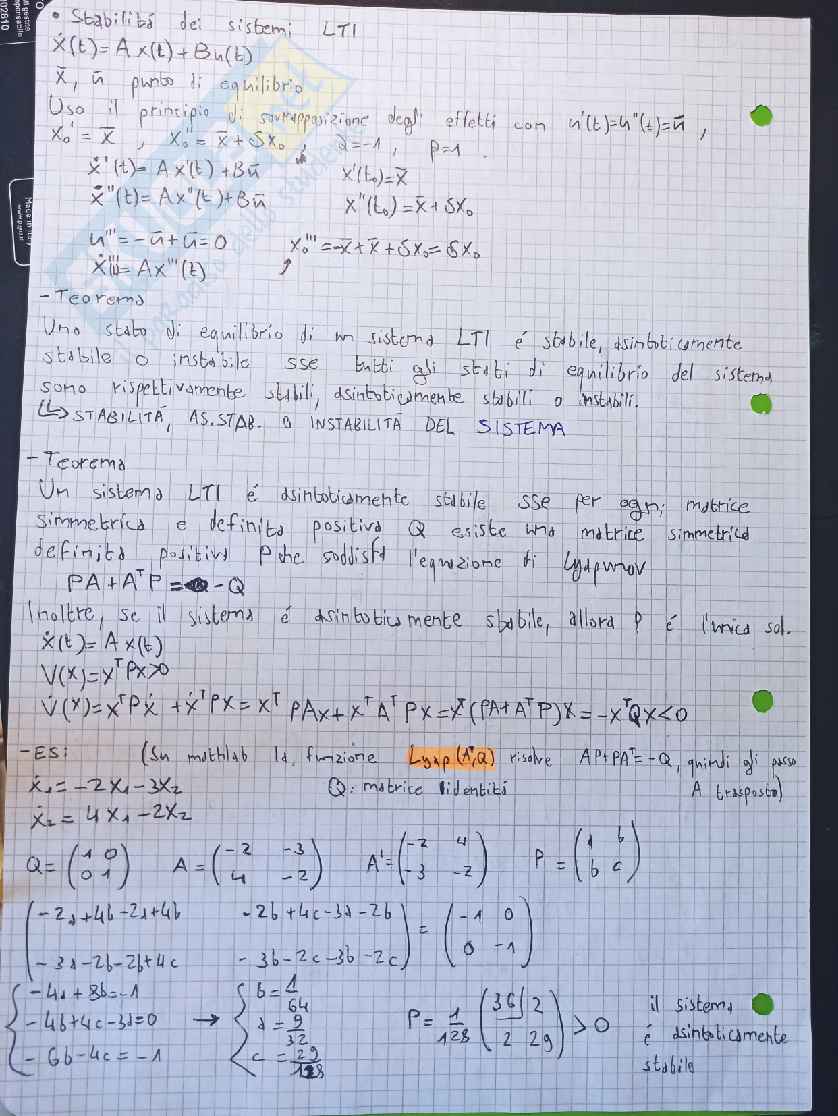 • Stabilitá dei sistemi LTI
ẋ(t) = A x(t) + Bu(t)
x̄, ū punto di equilibrio
Uso il principio di sovrapposizione degli effetti con u'(t)=u''(t)=ū,
x₀' = x̄ , x₀'' = x̄ + δx₀ , α=-1, β=1.
ẋ'(t) = Ax'(t) + Bū x'(t₀)=x̄
ẋ''(t) = Ax''(t) + Bū x''(t₀) = x̄ + δx₀
u''' = -ū + ū = 0 x₀''' = -x̄ + x̄ + δx₀ = δx₀
ẋ''' = Ax'''(t)
- Teorema
Uno stato di equilibrio di un sistema LTI é stabile, asintoticamente
stabile o instabile sse tutti gli stati di equilibrio del sistema
sono rispettivamente stabili, asintoticamente stabili o instabili.
↳ STABILITÁ, AS.STAB. O INSTABILITÁ DEL SISTEMA
- Teorema
Un sistema LTI é asintoticamente stabile sse per ogni matrice
simmetrica e definita positiva Q esiste una matrice simmetrica
definita positiva P che soddisfa l'equazione di Lyapunov
PA + AᵀP = -Q
Inoltre, se il sistema é asintoticamente stabile, allora P é l'unica sol.
ẋ(t) = A x(t)
V(x) = xᵀPx>0
V̇(x) = xᵀPẋ + ẋᵀPx = xᵀ PAx + xᵀAᵀPx = xᵀ(PA + AᵀP)x = -xᵀQx < 0
- ES: (Su mathlab la funzione Lyap(Aᵀ,Q) risolve AP+PAᵀ=-Q, quindi gli passo
ẋ₁ = -2x₁ - 3x₂ Q: matrice identitá A trasposto)
ẋ₂ = 4x₁ - 2x₂
Q = (1 0 A = (-2 -3 A' = (-2 4 P = (a b
0 1) 4 -2) -3 -2) b c)
(-2a+4b-2a+4b -2b+4c-3a-2b = (-1 0
-3a-2b-2b+4c -3b-2c-3b-2c) 0 -1)
{ -4a + 8b = -1 { b = 1/64
-4b+4c-3a=0 → a = 9/32 P = 1/128 (36 2 > 0 il sistema
-6b-4c = -1 c = 29/128 2 29) é asintoticamente
stabile